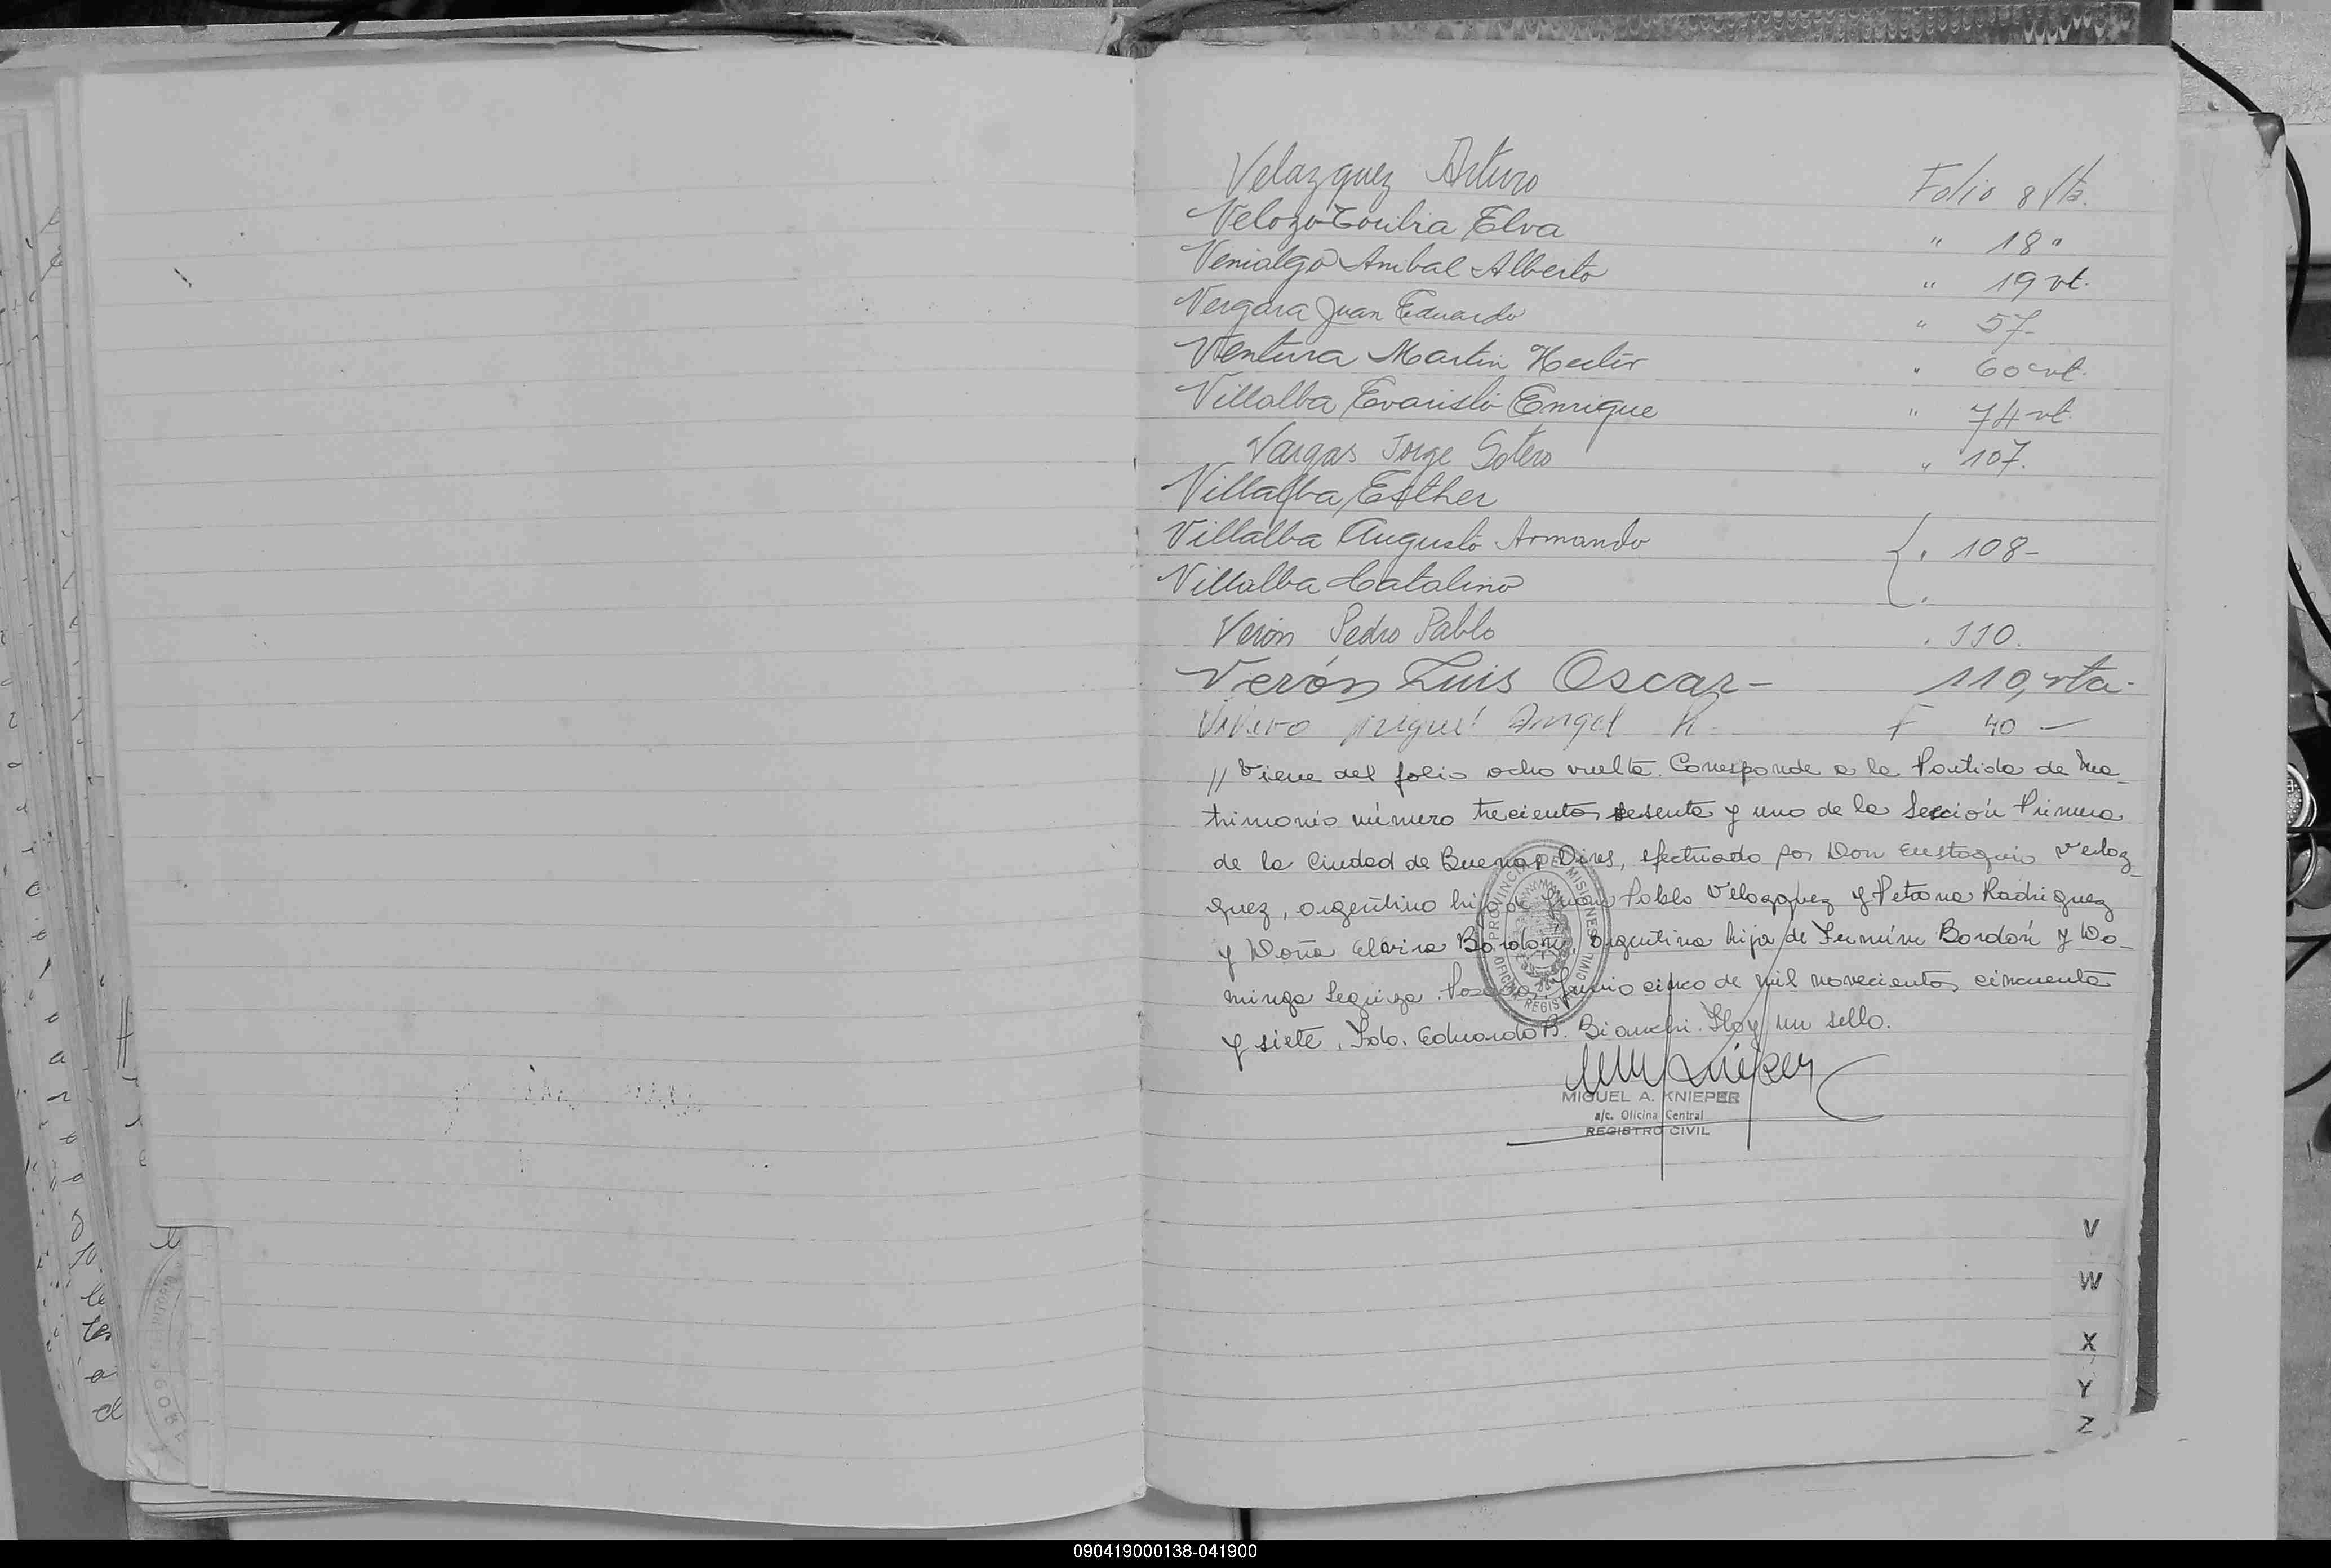 Velazquez Arturo Folio 8 Vta.
Velozo Toribia Elva " 18 "
Venialgo Anibal Alberto " 19 vt.
Vergara Juan Eduardo " 57-
Ventura Martin Hector " 60 vt.
Villalba Evaristo Enrique " 74 vt.
Vargas Jorge Sotero " 107.
Villalba Esther
Villalba Augusto Armando " 108-
Villalba Catalino "
Verón Pedro Pablo " 110.
Verón Luis Oscar- 110, vta-
Miguel Angel R. F 40 -
// Viene del folio ocho vuelta. Corresponde a la Partida de Ma-
trimonio número trecientos sesenta y uno de la Sección Primera
de la Ciudad de Buenos Aires, efectuado por Don Eustaquio Velaz-
quez, argentino hijo de Juan Pablo Velazquez y Petrona Rodriguez
y Doña Elvira Bordón, argentina hija de Fermín Bordón y Do-
minga Seguiza. Posadas, Junio cinco de mil novecientos cincuenta
y siete. Fdo. Eduardo B. Bianchi. Hay un sello.
PROVINCIA DE MISIONES
OFICINA REGISTRO CIVIL
MIGUEL A. KNIEPER
a/c. Oficina Central
REGISTRO CIVIL
V
W
X
Y
Z
090419000138-041900